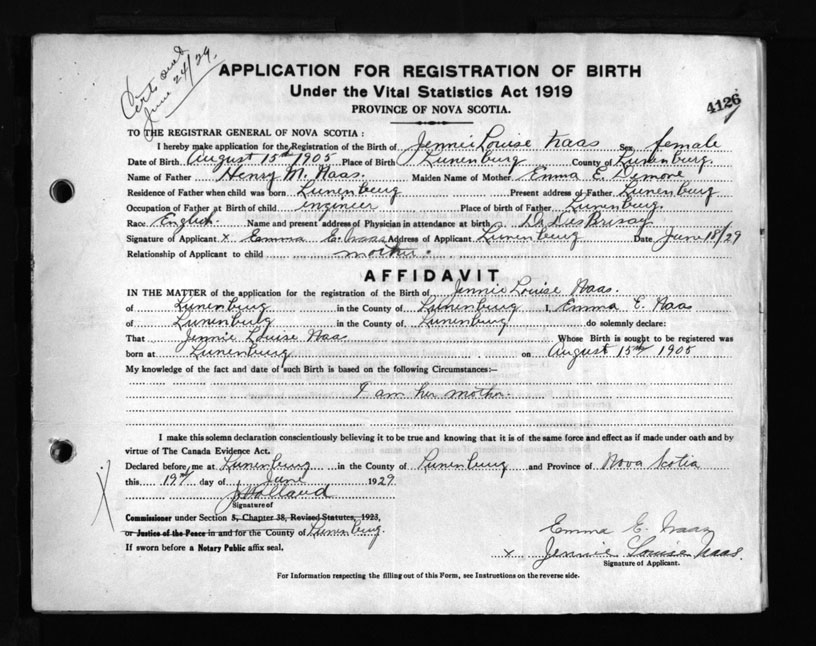 Certs sent
June 24/29.
APPLICATION FOR REGISTRATION OF BIRTH
Under the Vital Statistics Act 1919
PROVINCE OF NOVA SCOTIA.
4126
TO THE REGISTRAR GENERAL OF NOVA SCOTIA :
I hereby make application for the Registration of the Birth of Jennie Louise Naas Sex female
Date of Birth August 15th 1905 Place of Birth Lunenburg County of Lunenburg.
Name of Father Henry M. Naas. Maiden Name of Mother Emma E. Dimone
Residence of Father when child was born Lunenburg Present address of Father Lunenburg
Occupation of Father at Birth of child engineer Place of birth of Father Lunenburg.
Race English. Name and present address of Physician in attendance at birth Dr DesBrisay
Signature of Applicant x Emma E. Naas Address of Applicant Lunenburg Date June 18/29
Relationship of Applicant to child mother.
AFFIDAVIT
IN THE MATTER of the application for the registration of the Birth of Jennie Louise Naas.
of Lunenburg in the County of Lunenburg I, Emma E. Naas
of Lunenburg in the County of Lunenburg do solemnly declare:
That Jennie Louise Naas Whose Birth is sought to be registered was
born at Lunenburg on August 15th 1905
My knowledge of the fact and date of such Birth is based on the following Circumstances:—
I am her mother.
I make this solemn declaration conscientiously believing it to be true and knowing that it is of the same force and effect as if made under oath and by
virtue of The Canada Evidence Act.
Declared before me at Lunenburg in the County of Lunenburg and Province of Nova Scotia
this 19th day of June 1929
J Holland
Signature of
Commissioner under Section 5, Chapter 38, Revised Statutes, 1923,
or Justice of the Peace in and for the County of Lunenburg.
If sworn before a Notary Public affix seal.
Emma E. Naas
x Jennie Louise Naas.
Signature of Applicant.
For Information respecting the filling out of this Form, see Instructions on the reverse side.